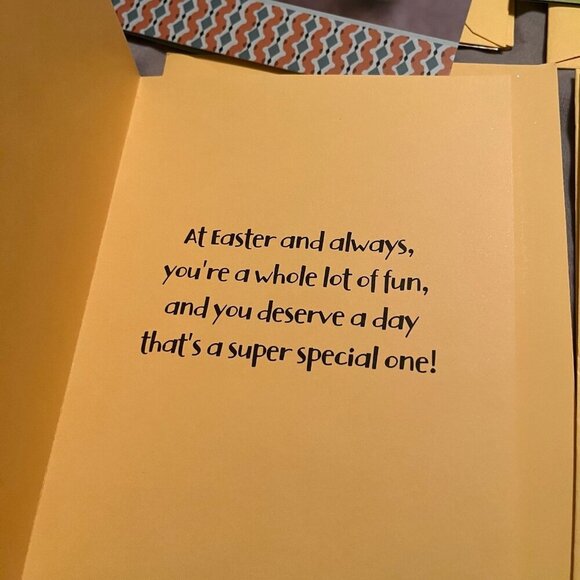 At Easter and always,
you're a whole lot of fun,
and you deserve a day
that's a super special one!